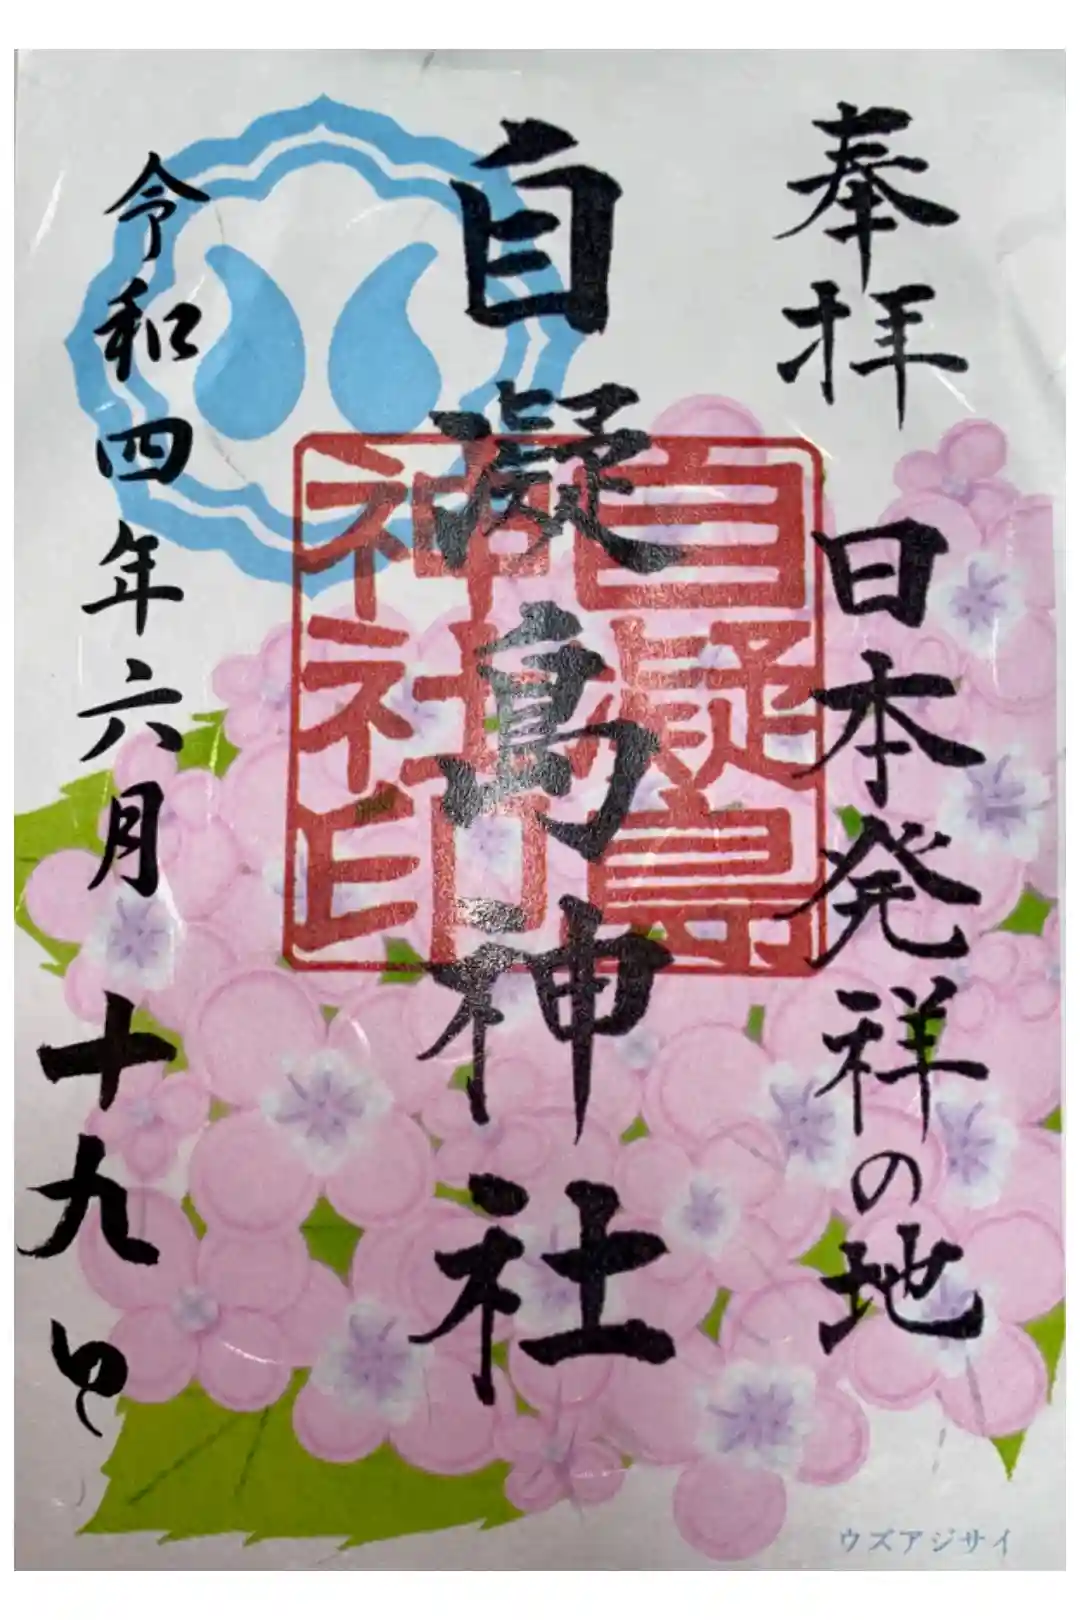 奉拝
日本発祥の地
自凝島神社
自凝島
神社印
令和四年六月十九日
ウズアジサイ